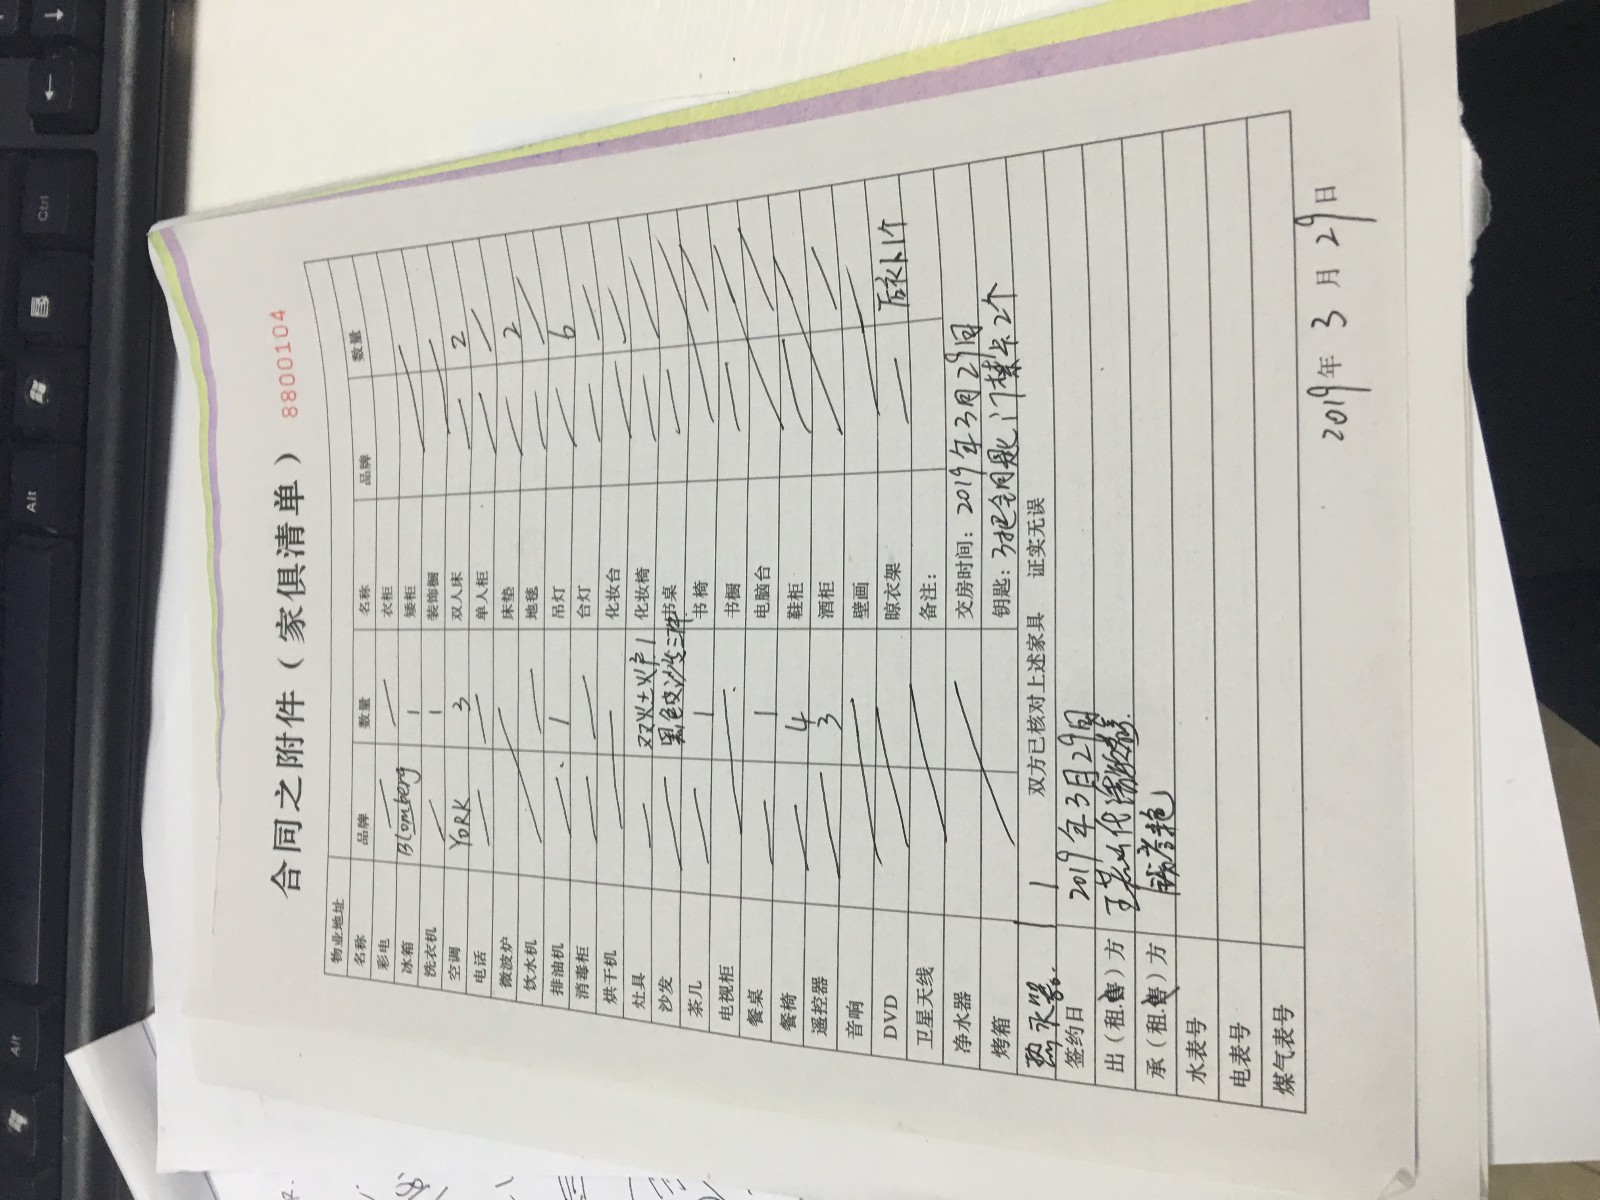 合同之附件（家俱清单） 8800104
物业地址
名称 品牌 数量 名称 品牌 数量
彩电 衣柜
冰箱 Blomberg 1 矮柜
洗衣机 1 装饰橱
空调 YORK 3 双人床 2
电话 单人柜
微波炉 床垫 2
饮水机 地毯
排油机 1 吊灯 6
消毒柜 台灯
烘干机 化妆台
灶具 双火土火户1 化妆椅
沙发 黑色皮沙发三件 书桌
茶几 1 书椅
电视柜 书橱
餐桌 1 电脑台
餐椅 4 鞋柜
遥控器 3 酒柜
音响 壁画
DVD 晾衣架 后补1个
卫星天线 备注：
净水器 交房时间：2019年3月29日
烤箱 钥匙：3把钥匙门禁卡2个
热水器 1 双方已核对上述家具 证实无误
签约日 2019年3月29日
出（租.售）方
承（租.售）方
水表号
电表号
煤气表号
2019年3月29日
Ctrl
Alt
Alt